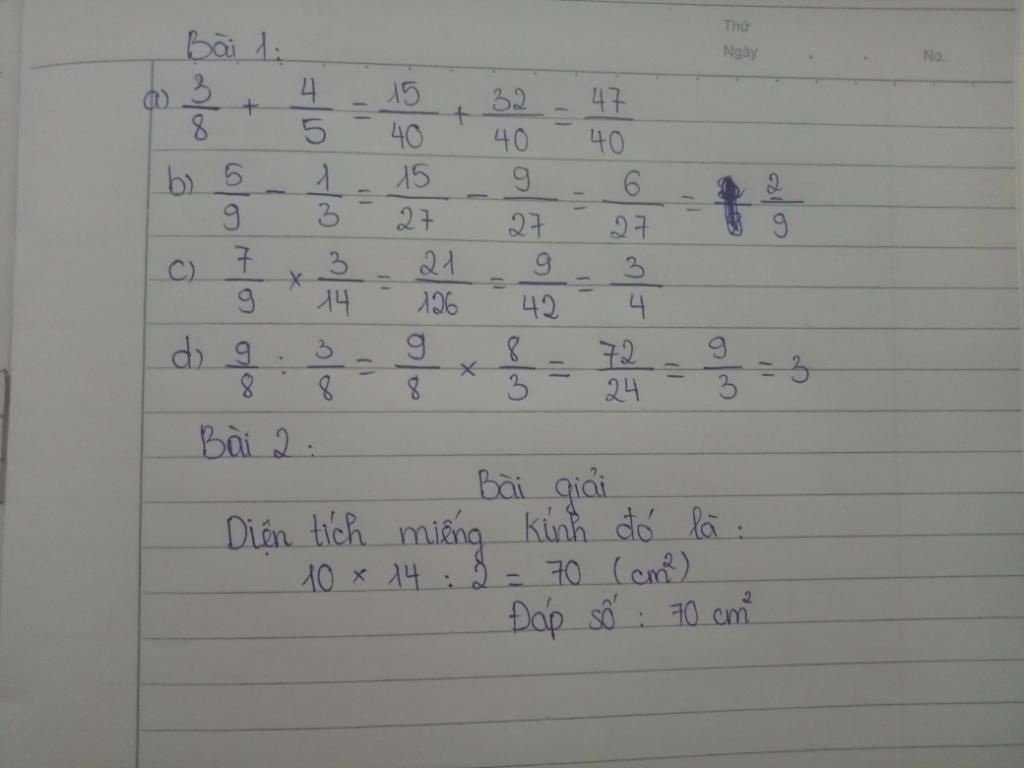 Thứ
Ngày . . No.
Bài 1:
a) 3/8 + 4/5 = 15/40 + 32/40 = 47/40
b) 5/9 - 1/3 = 15/27 - 9/27 = 6/27 = 2/9
c) 7/9 × 3/14 = 21/126 = 9/42 = 3/4
d) 9/8 : 3/8 = 9/8 × 8/3 = 72/24 = 9/3 = 3
Bài 2:
Bài giải
Diện tích miếng kính đó là:
10 × 14 : 2 = 70 (cm²)
Đáp số : 70 cm²